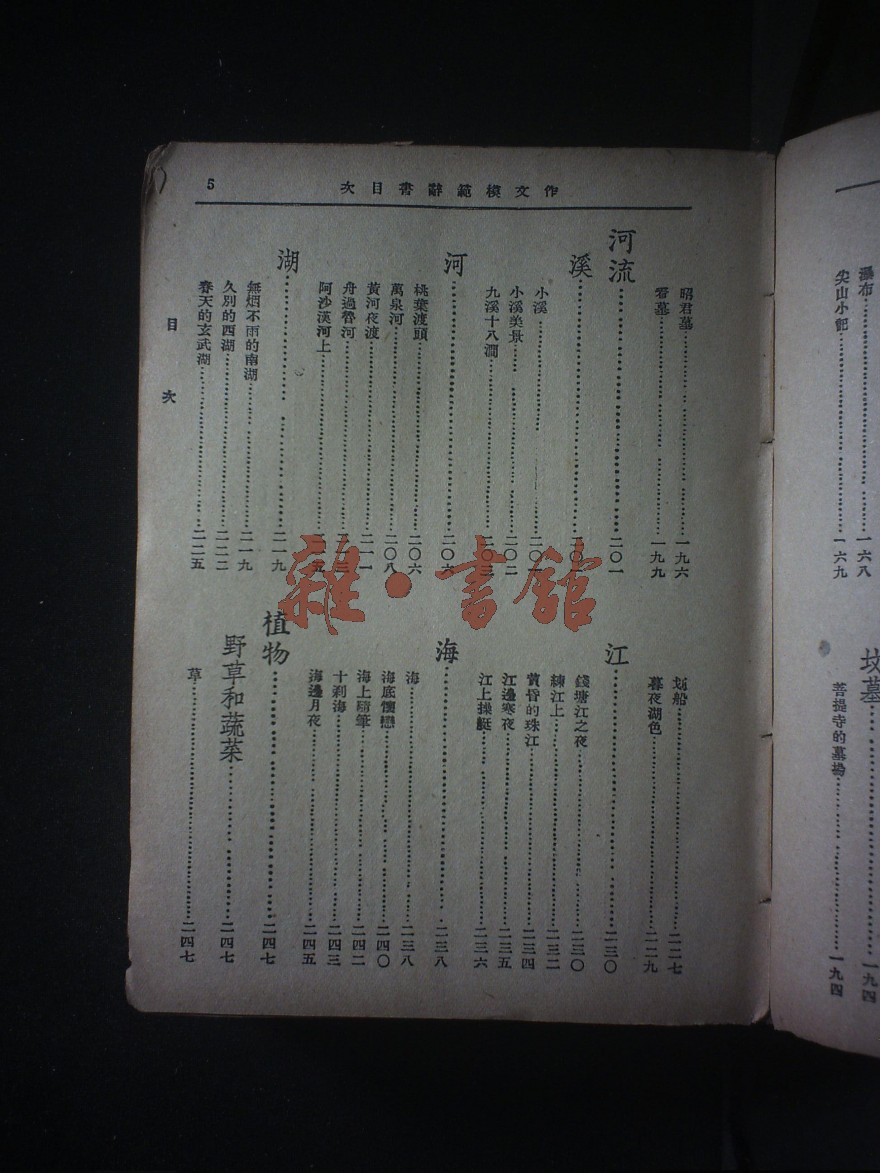 作文模範辭書目次
5
昭君墓……一九六
看墓……一九九
河流……二〇一
溪……二〇一
小溪……二〇一
小溪美景……二〇二
九溪十八澗……二〇三
河……二〇六
桃葉渡頭……二〇六
萬泉河……二〇八
黃河夜渡……二一一
舟過營河……二一三
阿沙漢河上……二一五
湖……二一九
無烟不雨的南湖……二一九
久別的西湖……二二二
春天的玄武湖……二二五
划船……二二七
暮夜湖色……二二九
江……二三〇
錢塘江之夜……二三〇
練江上……二三二
黃昏的珠江……二三四
江邊寒夜……二三五
江上操艇……二三六
海……二三八
海……二三八
海底懷戀……二四〇
海上隨筆……二四二
十剎海……二四三
海邊月夜……二四五
植物……二四七
野草和蔬菜……二四七
草……二四七
目次
瀑布……一六八
尖山小記……一六九
坟墓……一九四
菩提寺的墓場……一九四
雜·書館